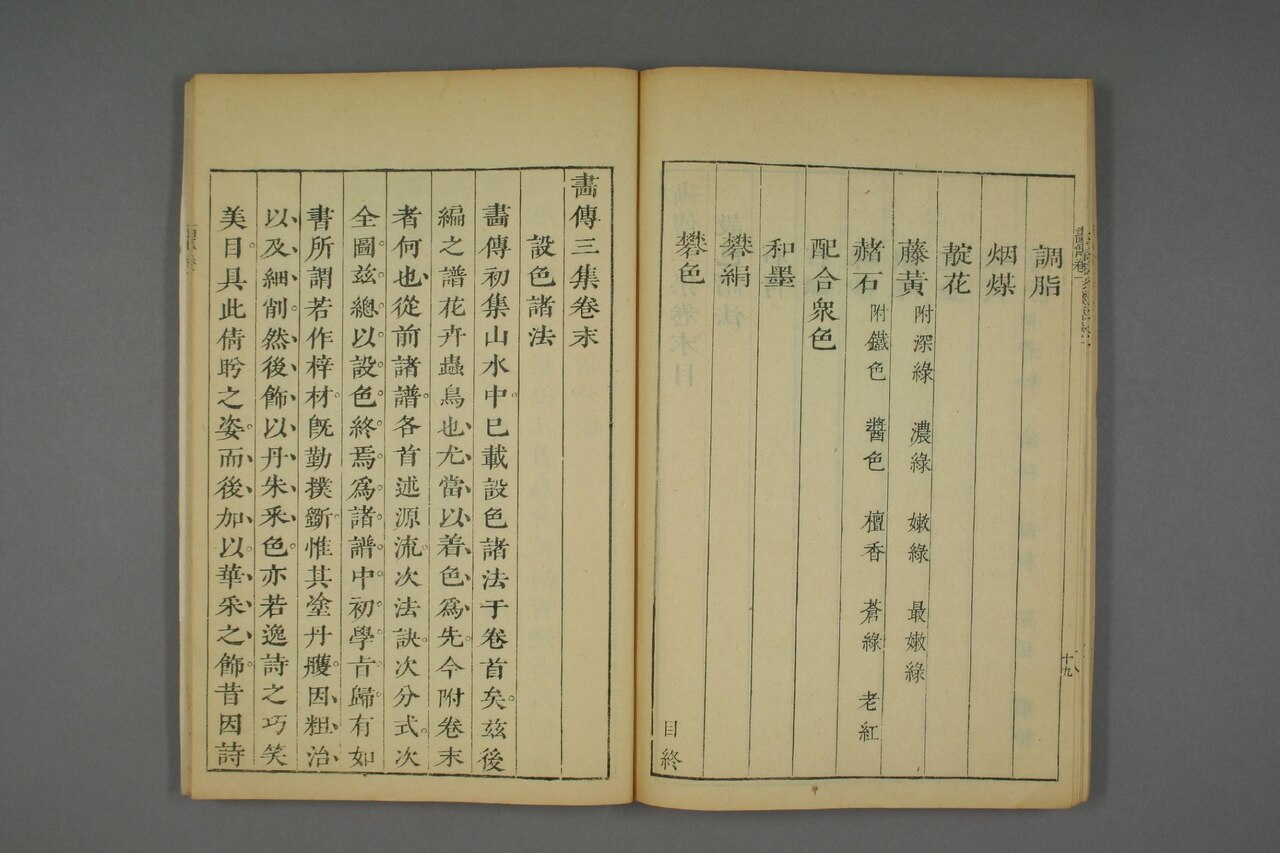 調脂
烟煤
靛花
藤黃 附深綠 濃綠 嫩綠 最嫩綠
赭石 附鐵色 醬色 檀香 蒼綠 老紅
配合衆色
和墨
礬絹
礬色
目終
十九
畵傳三集卷末
設色諸法
畵傳初集山水中。巳載設色諸法于卷首矣。兹後
編之譜花卉蟲鳥也、尤當以着色、爲先。今附卷末
者何也、從前諸譜。各首述源流。次法訣。次分式。次
全圖。兹總以設色。終焉。爲諸譜中。初學㫖歸。有如
書所謂若作梓材。旣勤撲斵。惟其塗丹雘。因、粗、治、
以、及、細、削、然、後、飾、以、丹、朱、釆、色。亦若逸詩之巧笑
美目。具此倩盻之姿。而、後、加、以、華、釆、之、飾。昔因詩